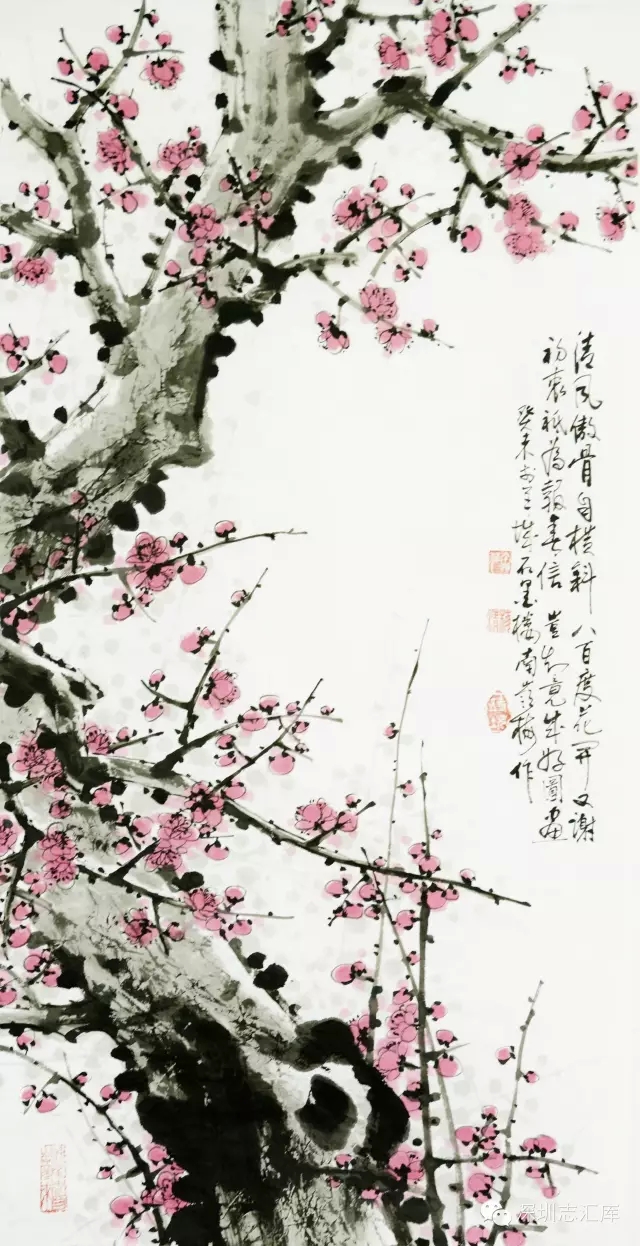 清风傲骨自横斜 八百度花开又谢
初衷祇为報春信 岂知竟成好圖画
癸未 石墨楼南岩梅作
深圳志汇库